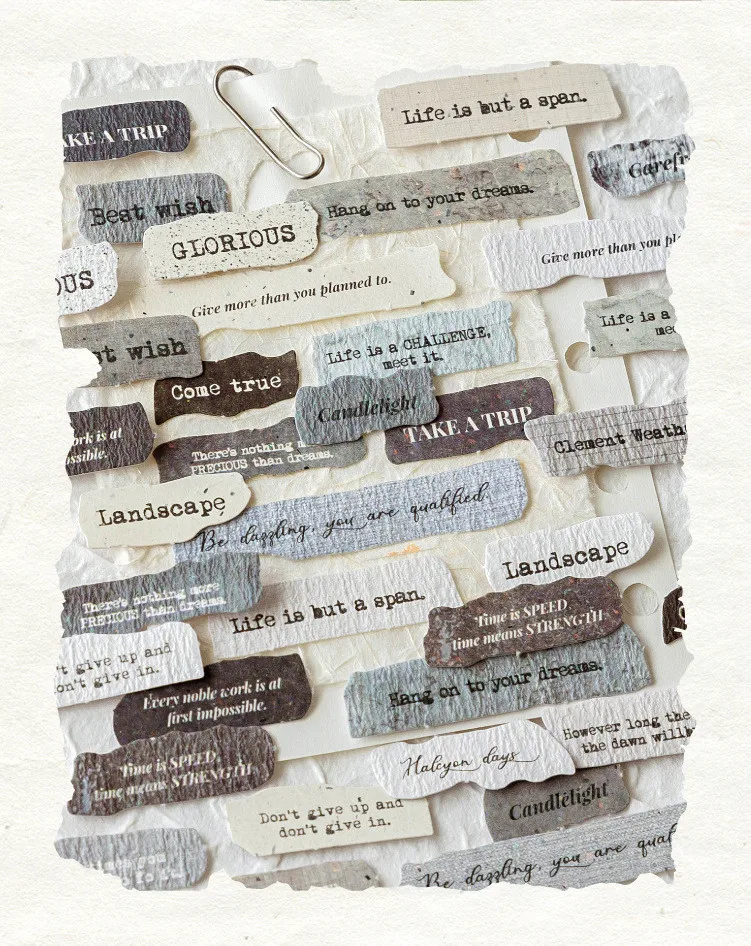 Life is but a span.
AKE A TRIP
Carefr
Best wish
Hang on to your dreams.
GLORIOUS
Give more than you pl
OUS
Give more than you planned to.
Life is a
mee
st wish
Life is a CHALLENGE,
meet it.
Come true
Candlelight
TAKE A TRIP
ork is at
ssible.
Clement Weath
There's nothing m
PRECIOUS than dreams.
Landscape
Be dazzling, you are qualified
Landscape
There's nothing more
PRECIOUS than dreams
Life is but a span.
Time is SPEED
time means STRENGTH
't give up and
on't give in.
Hang on to your dreams.
Every noble work is at
first impossible.
However long the
the dawn will b
Time is SPEED
time means STRENGTH
Halcyon days
Candlelight
Don't give up and
don't give in.
Be dazzling, you are qual
you